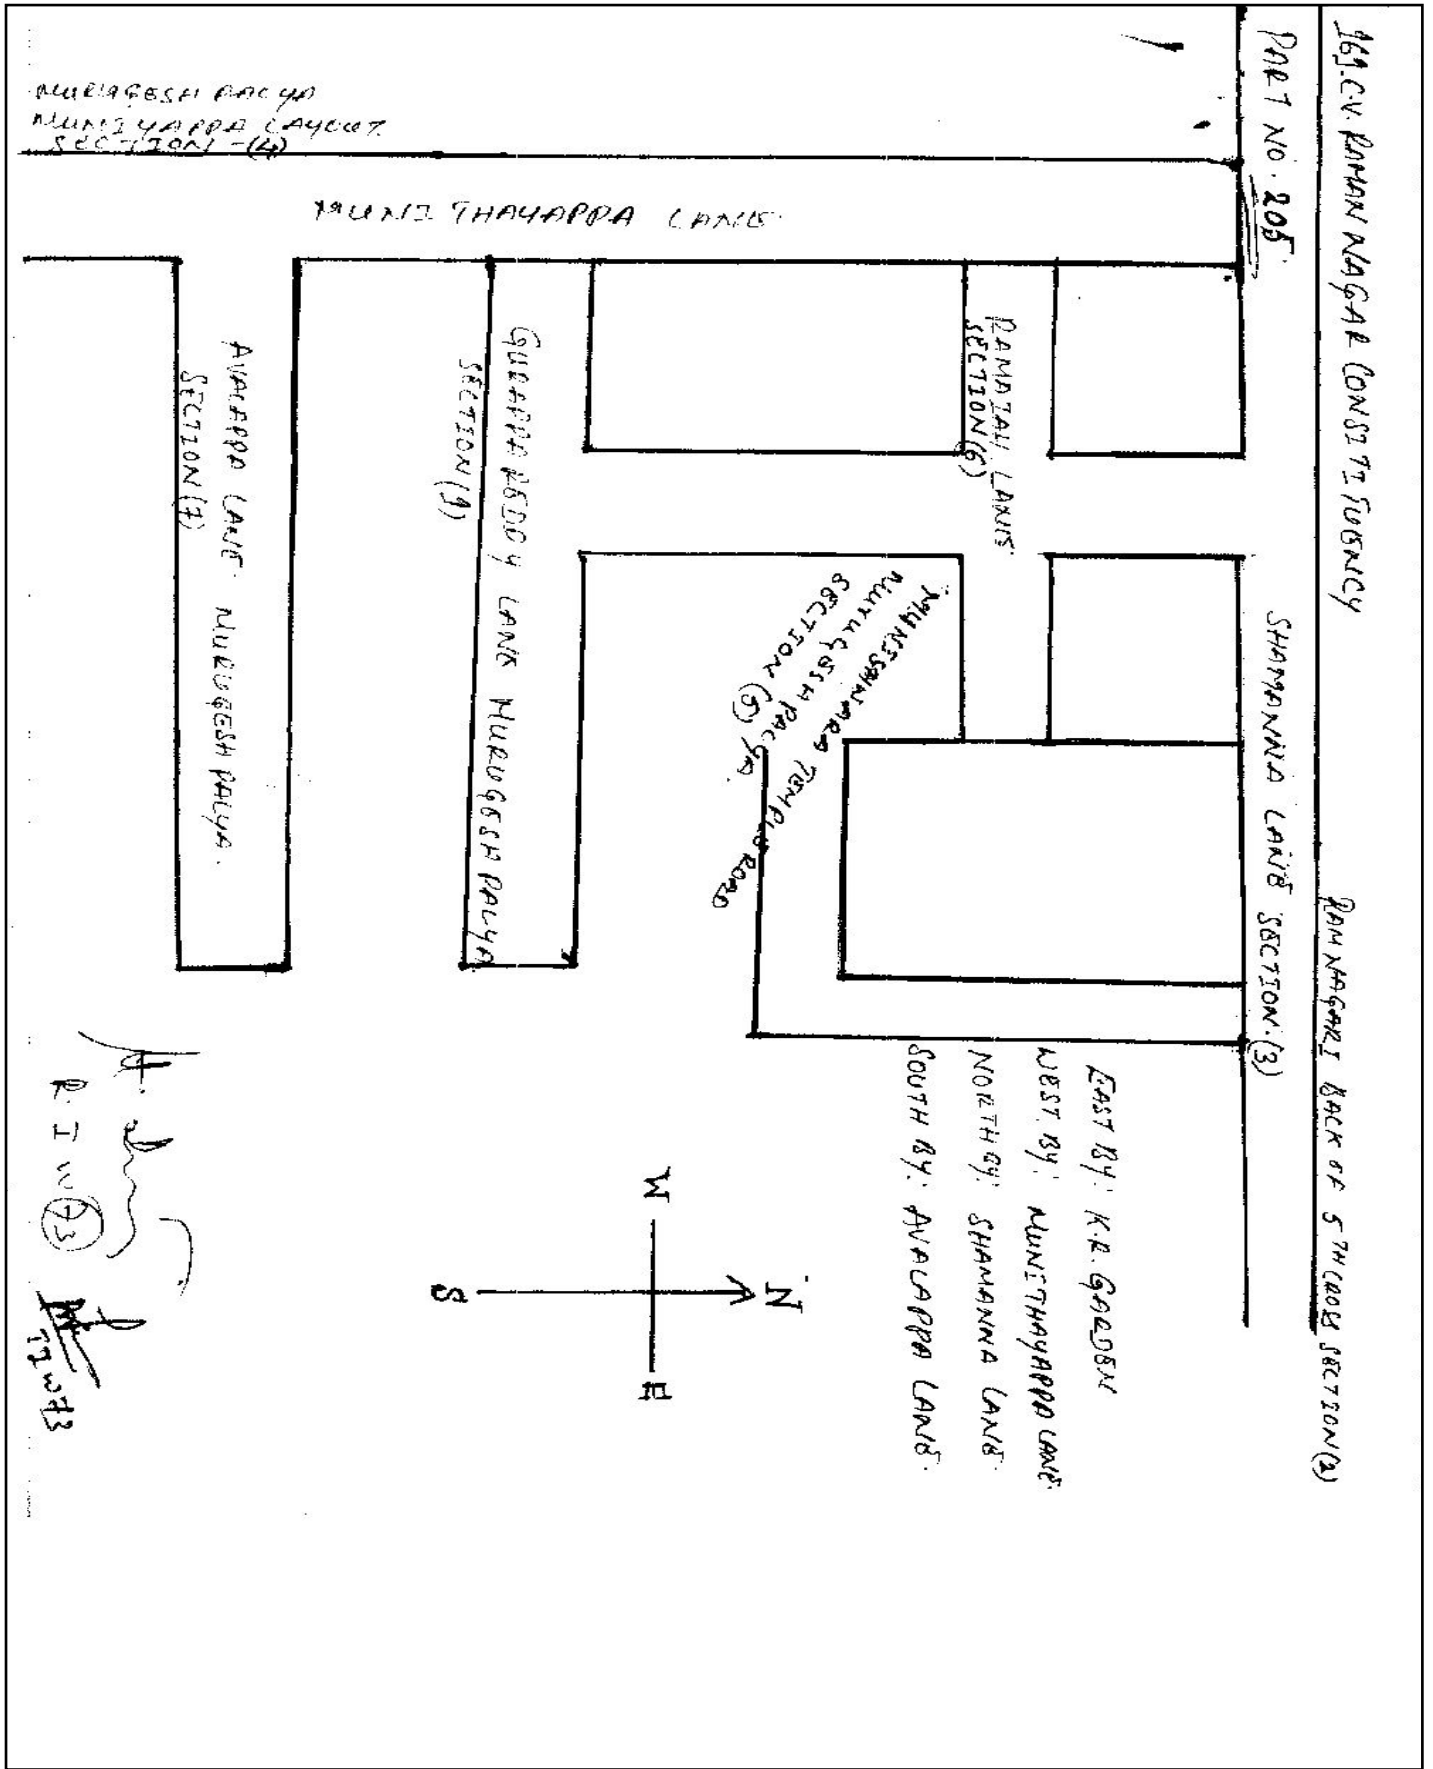 169.C.V. RAMAN NAGAR CONSITITUENCY
PART NO. 205
RAMNAGARI BACK OF 5TH CROSS SECTION(2)
SHAMANNA LANE SECTION.(3)
MURUGESH PALYA
MUNIYAPPA LAYOUT
SECTION -(4)
MUNITHAYAPPA LANE
RAMAIAH LANE
SECTION(6)
MUNISSHWARA TEMPLE ROAD
MURUGESH PALYA
SECTION (5)
GURAPPA REDDY LANE MURUGESH PALYA
AVALAPPA LANE. MURUGESH PALYA.
SECTION(7)
EAST BY: K.R. GARDEN
WEST BY: MUNITHAYAPPA LANE.
NORTH BY: SHAMANNA LANE.
SOUTH BY: AVALAPPA LANE.
N
W
E
S
R.I W 73